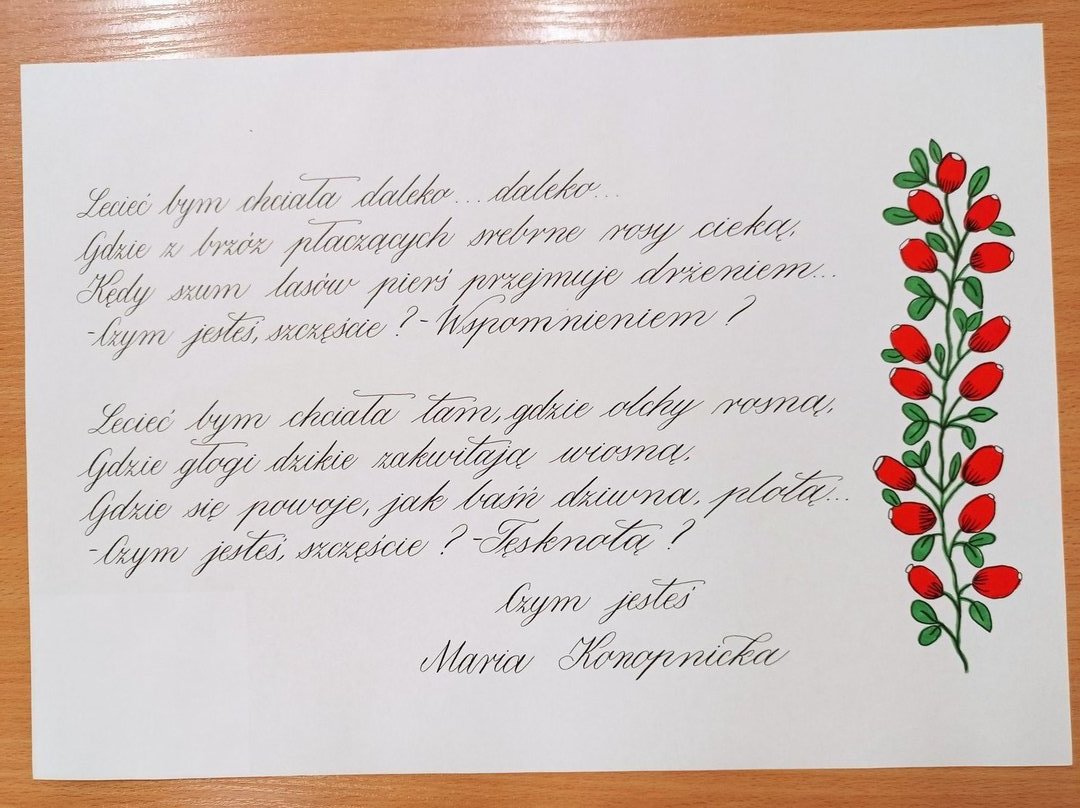 Lecieć bym chciała daleko... daleko...
Gdzie z brzóz płaczących srebrne rosy cieką,
Kędy szum lasów pierś przejmuje drżeniem...
-Czym jesteś, szczęście ? - Wspomnieniem ?
Lecieć bym chciała tam, gdzie olchy rosną,
Gdzie głogi dzikie zakwitają wiosną,
Gdzie się powoje, jak baśń dziwna, plotą...
-Czym jesteś, szczęście ? -Tęsknotą ?
Czym jesteś
Maria Konopnicka